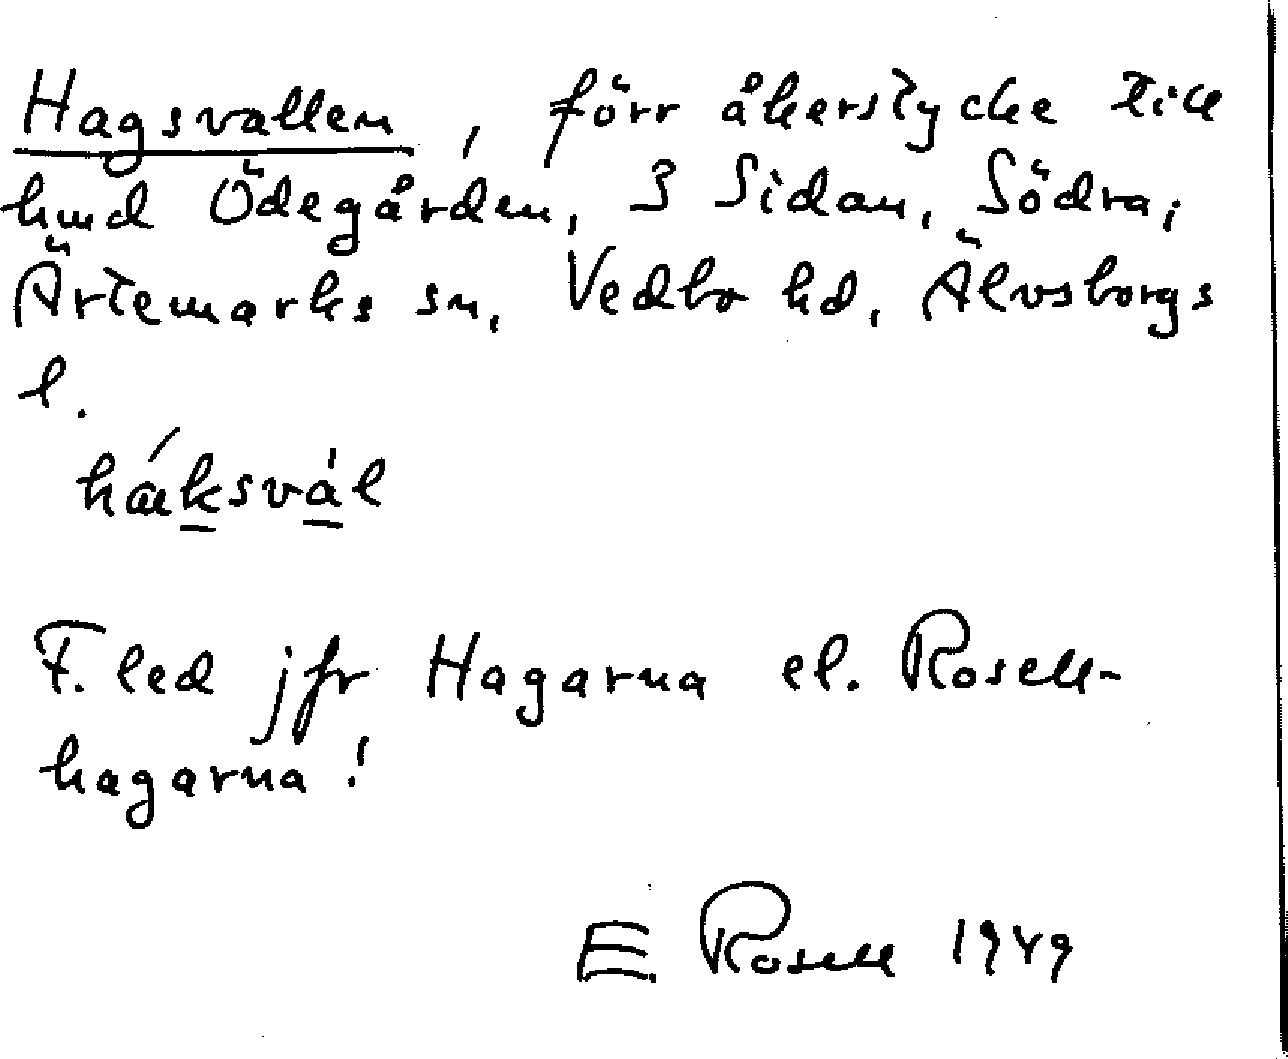 Hagsvallen, förr åkerstycke till
hmd Ödegården, 3 Sidan, Södra,
Ärtemarks sn, Vedbo hd, Älvsborgs
l.
hák̲svá̲l
F. led jfr Hagarna el. Rosell-
hagarna!
E. Rosell 1949